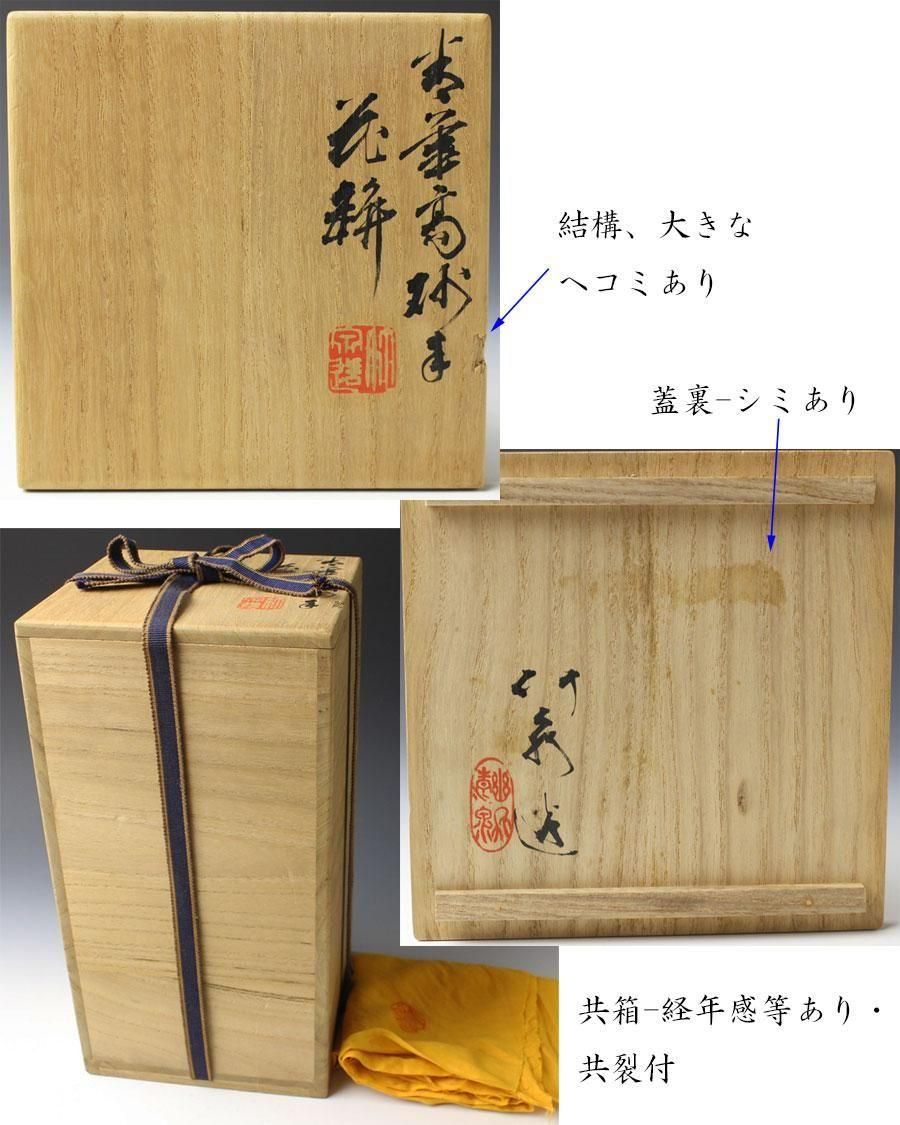 青華高砂手
花瓶
結構、大きな
ヘコミあり
蓋裏-シミあり
竹泉造
共箱-経年感等あり・
共裂付